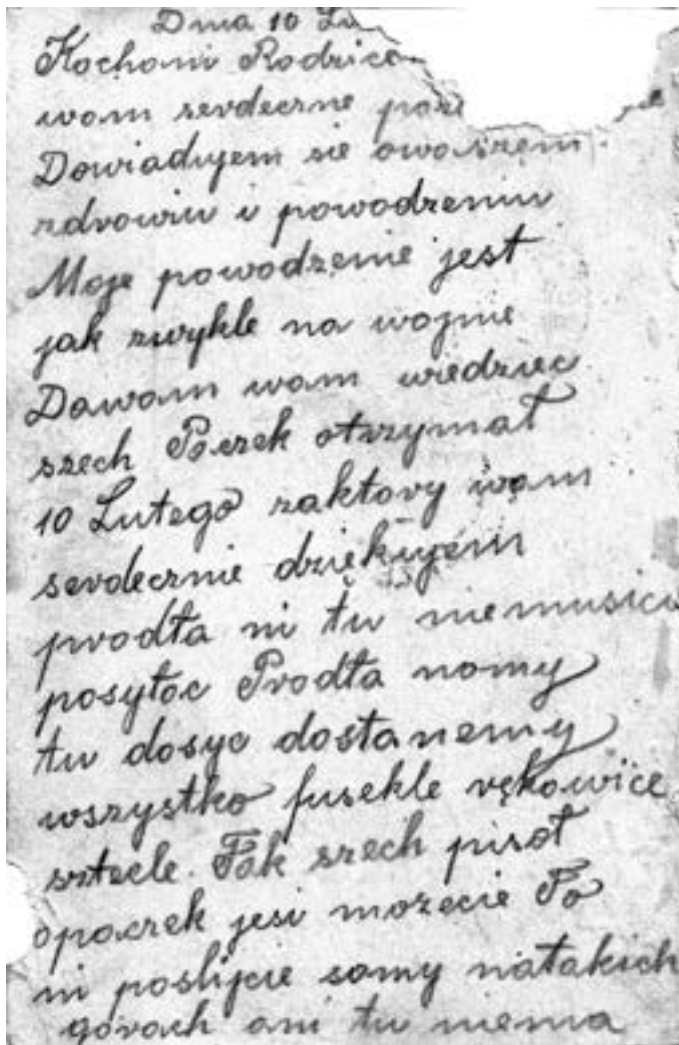 Dnia 10 Lu
Kochani Rodzice
wam serdeczne poz
Dowiadujem sie owaszem
zdrowiu i powodzeniu
Moje powodzenie jest
jak zwykle na wojnie
Dawam wam wiedziec
szech Paczek otrzymał
10 Lutego zaktory wam
serdecznie dziękujem
prodła mi tu niemusicie
posyłac Prodła nomy
tu dosyc dostanemy
wszystko fusekle rękowice
sztecle. Tak szech pisoł
opaczek jesi mozecie To
mi poslijcie somy natakich
gorach ani tu niema